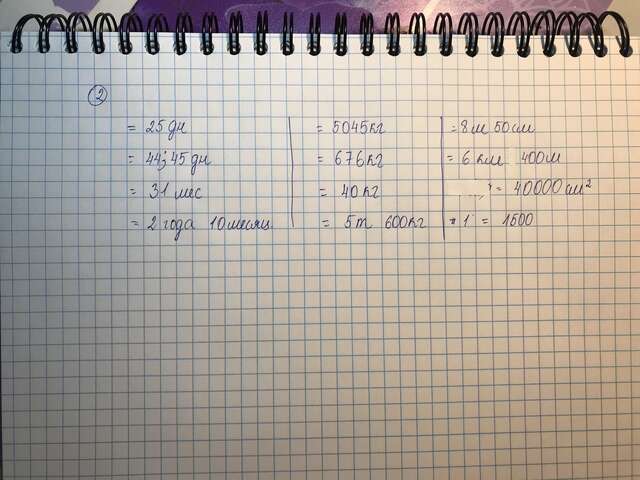 2
= 25 дн
= 44; 45 дн
= 31 мес
= 2 года 10 месяц.
= 5045 кг
= 676 кг
= 40 кг
= 5 т 600 кг
= 8 м 50 см
= 6 км 400 м
= 40000 см²
= 1 = 1500